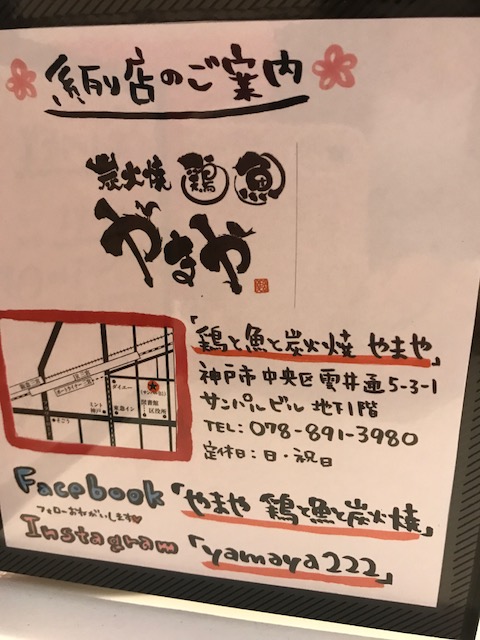 系列店のご案内
炭火焼 鶏 魚
やまや
「鶏と魚と炭火焼 やまや」
神戸市中央区雲井通5-3-1
サンパルビル 地下1階
TEL:078-891-3980
定休日:日・祝日
ダイエー
ミント神戸
東急イン
図書館
区役所
そごう
Facebook「やまや 鶏と魚と炭火焼」
フォローおねがいします♥
Instagram「yamaya222」